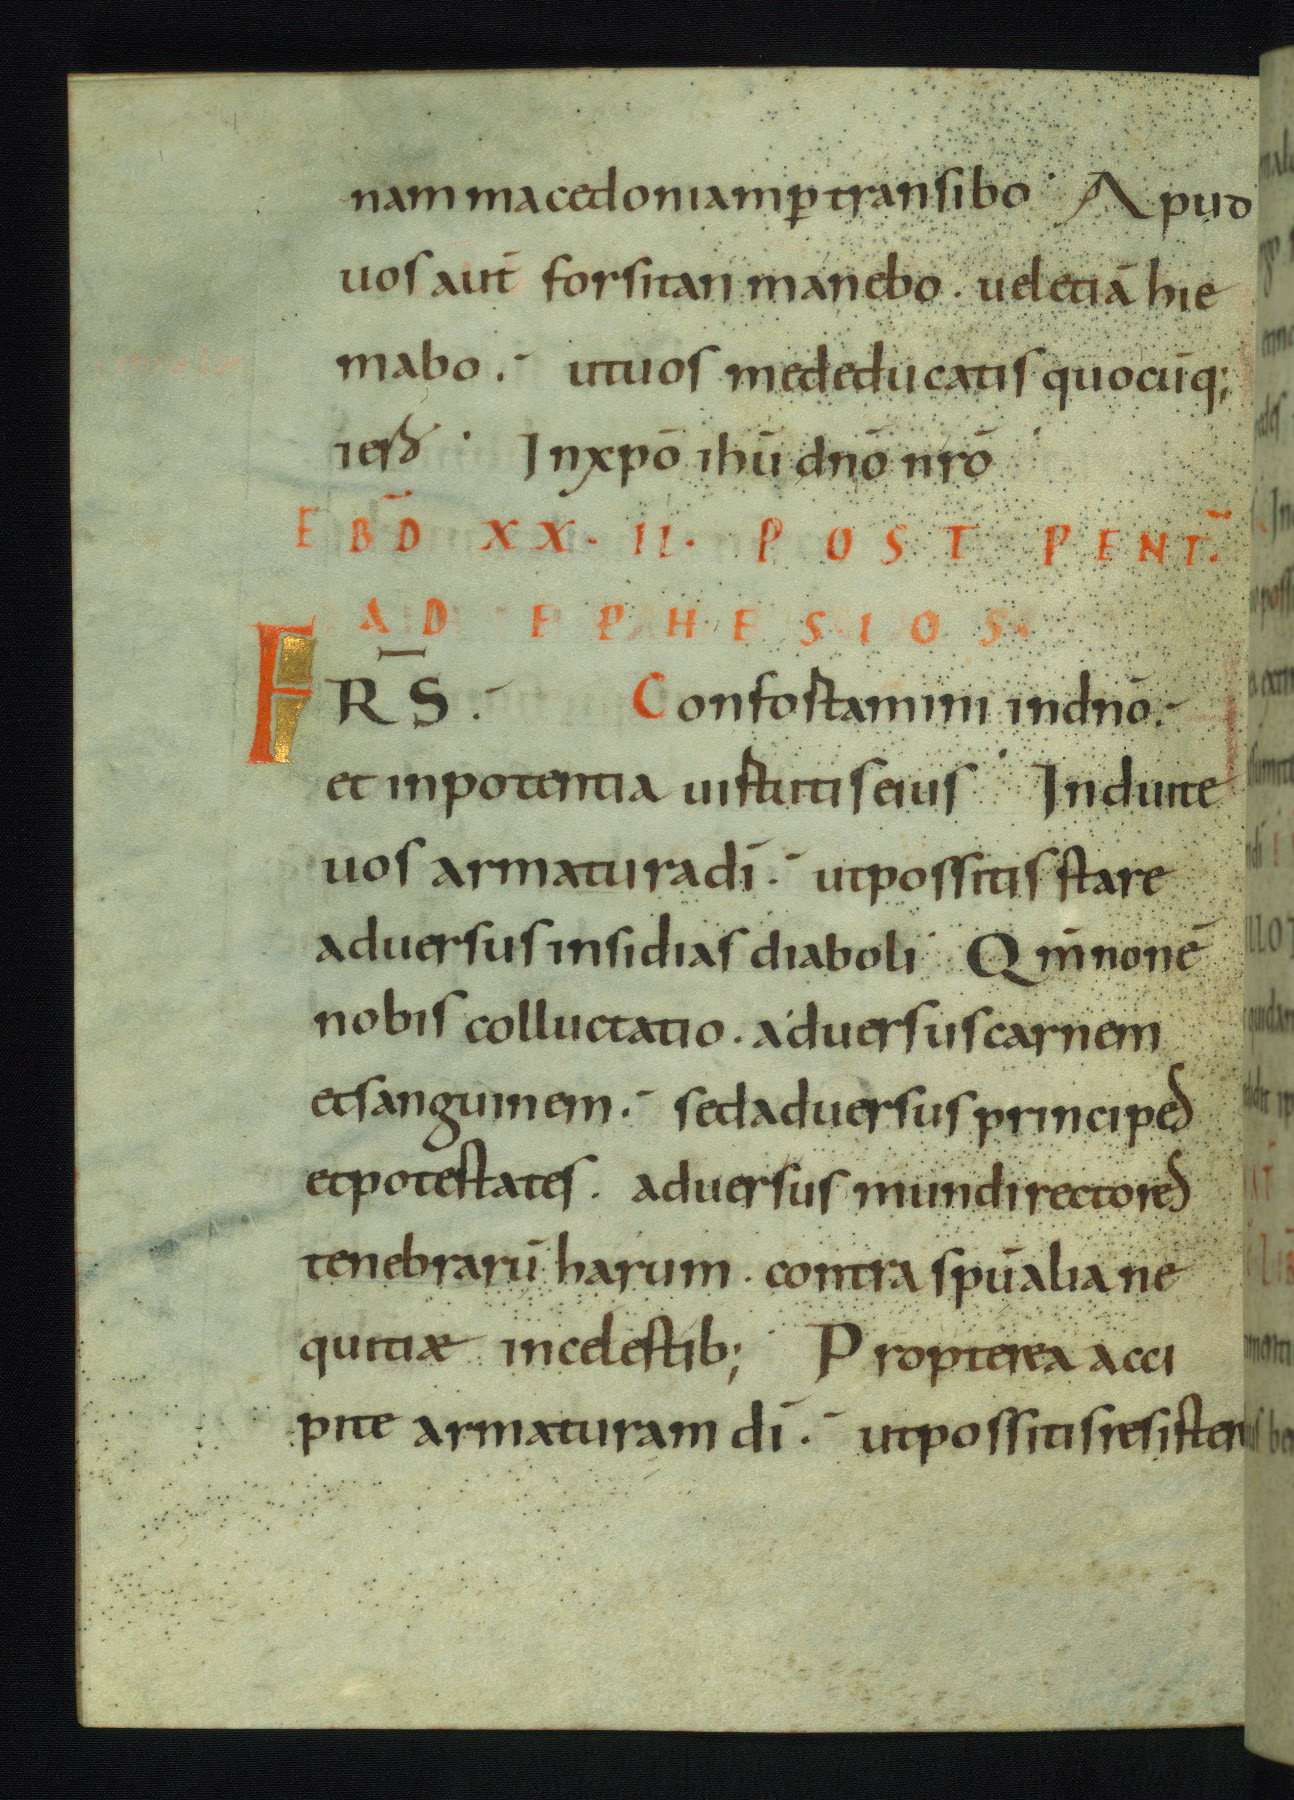 nam macedoniam ꝑtransibo Apud
uos aut̄ forsitan manebo. uel etiā hie
mabo. ut uos me deducatis quocūq;
iero In xpō ihū dnō nrō
EBD̄ XX.II. POST PENT̄.
AD EPHESIOS.
FR̄S. Confortamini in dnō.
et in potentia uirtutis eius Induite
uos armatura dī. ut possitis stare
aduersus insidias diaboli Qm̄ non ē
nobis colluctatio. aduersus carnem
et sanguinem. sed aduersus principes
et potestates. aduersus mundi rectores
tenebrarū harum. contra spūalia ne
quitiae in celestib; Propterea acci
pite armaturam dī. ut possitis resistere